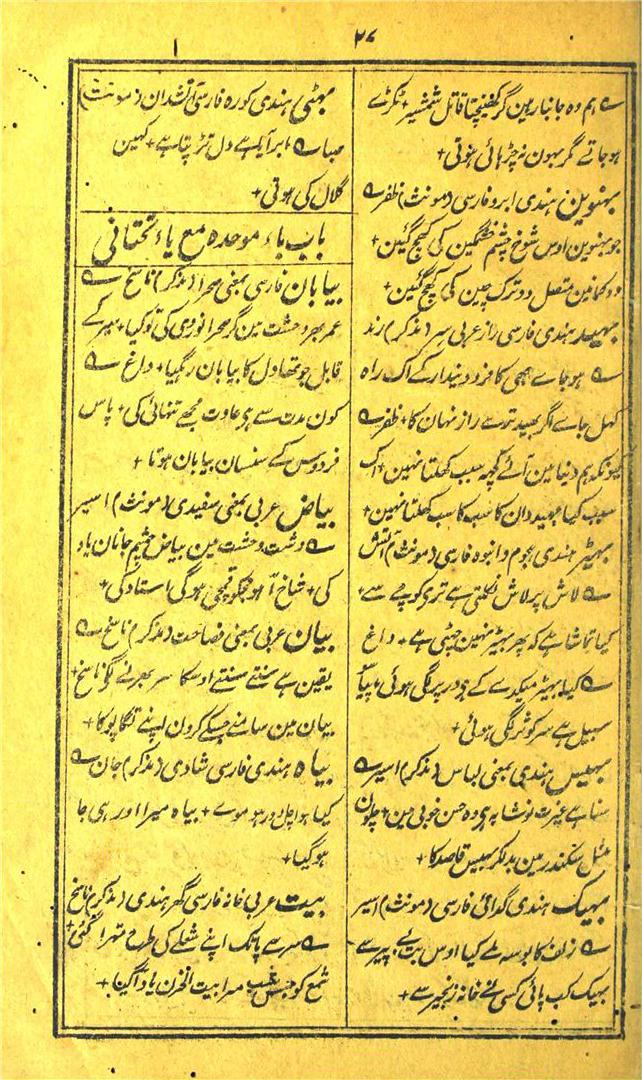 ۲۸
؎ ہم وہ جانباز ہین گر کھینچتا قاتل شمشیر + ٹکڑے
ہو جاتے مگر بھون نہ چڑہائی ہوتی +
بھنوین ہندی ابرو فارسی (مونث) ظفر ؎
جو بھنوین اوس شوخ چشم خشمگین کی کھچ گئین +
دو کمانین متصل دو ترک چین کی کھچ گئین +
بھید ہندی فارسی راز عربی سر (مذکر) رند
؎ ہو جاے ہمی کافر و دیندار کے اک راہ
کھل جاے اگر بھید ترے راز نہان کا + ظفر ؎
کیونکہ ہم دنیا مین آئے کچھ سبب کھلتا نہین + اک
سبب کیا بھید وان کا سب کا سب کھلتا نہین +
بھیڑ ہندی ہجوم و انبوہ فارسی (مونث) آتش
؎ لاش پر لاش نکلتی ہے تری کوچے سے +
کیا تماشا ہے کہ پھر بھیڑ نہین چھٹتی ہے + داغ
؎ کیا بھیڑ میکدے کے ہی در پر لگی ہوئی +
سبیل ہے سر کوثر لگی ہوئی +
بھیس ہندی بمعنی لباس (مذکر) اسیر ؎
سنا ہے غیرت نوشابہ ہی وہ حسن خوبی مین +
مثل سکندر مین بدلکر بھیس قاصد کا +
بھیک ہندی گدائی فارسی (مونث) اسیر
؎ زلف کا بوسہ ملے کیا اوس بت بے پیر سے
بھیک کب پائی کسی نے خانہ زنجیر سے +
بھٹی ہندی کورہ فارسی آتشدان (مونث)
صبا ؎ ابر آیا ہے دل تڑپتا ہے + کہین
گلال کی ہوتی +
باب باء موحدہ مع یاء تحتانی
بیابان فارسی بمعنی صحرا (مذکر) ناسخ ؎
عمر بھر وحشت مین گر صحرا نوردی کی تو کیا + میر کے
قابل جو تھا دل کا بیابان رہگیا + داغ ؎
کون مدت سے ہی عادت مجھے تنہائی کی + پاس
فردوس کے سنسان بیابان ہوتا +
بیاض عربی بمعنی سفیدی (مونث) اسیر
؎ دشت وحشت مین بیاض چشم جانان یاد
کی + شاخ آہو مجکو قمچی ہو گئی استاد کی +
بیان عربی بمعنی فصاحت (مذکر) ناسخ ؎
یقین ہے سنتے سنتے اوسکا سر پھرنے لگو ناسخ +
بیان مین سامنے جسکے کرون اپنے تگاپو کا +
بیاہ ہندی فارسی شادی (مذکر) جان ؎
کیا ہوا چال در ہو موے + بیاہ میرا اور ہی جا
ہو گیا +
بیت عربی خانہ فارسی گھر ہندی (مذکر) ناسخ
؎ سر سے پا تک اپنے شعلے کی طرح تھرا گئی +
شمع کو جس شب مرا بیت الحزن یاد آگیا +